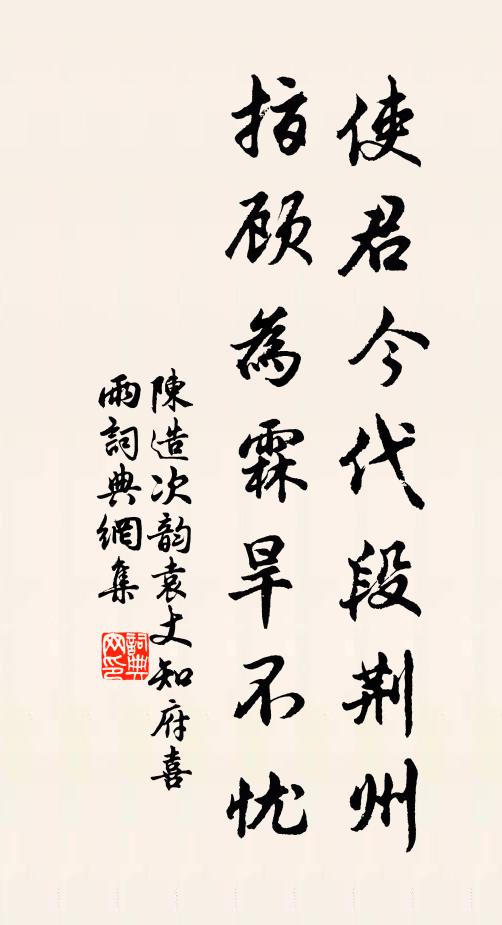 使君今代段荆州
指顾為霖旱不忧
陳造次韵袁丈知府喜
雨詞典網集
詞典
网印